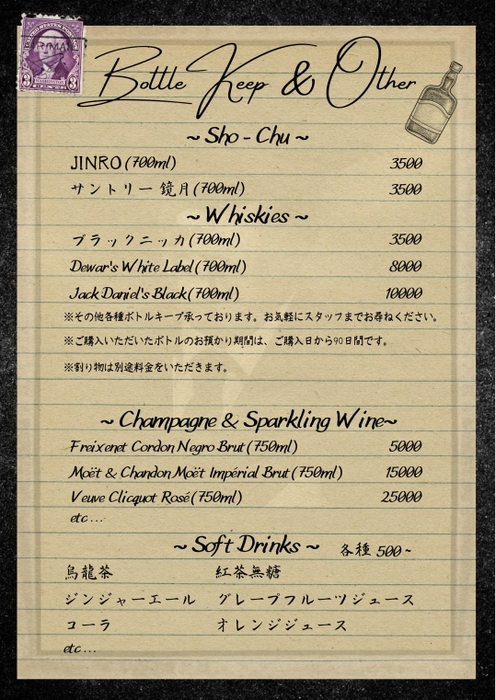 Bottle Keep & Other
~ Sho - Chu ~
JINRO (700ml) 3500
サントリー 鏡月 (700ml) 3500
~ Whiskies ~
ブラックニッカ (700ml) 3500
Dewar's White Label (700ml) 8000
Jack Daniel's Black (700ml) 10000
※その他各種ボトルキープ承っております。お気軽にスタッフまでお尋ねください。
※ご購入いただいたボトルのお預かり期間は、ご購入日から90日間です。
※割り物は別途料金をいただきます。
~ Champagne & Sparkling Wine~
Freixenet Cordon Negro Brut (750ml) 5000
Moët & Chandon Moët Impérial Brut (750ml) 15000
Veuve Clicquot Rosé (750ml) 25000
etc...
~ Soft Drinks ~ 各種 500~
烏龍茶 紅茶無糖
ジンジャーエール グレープフルーツジュース
コーラ オレンジジュース
etc...